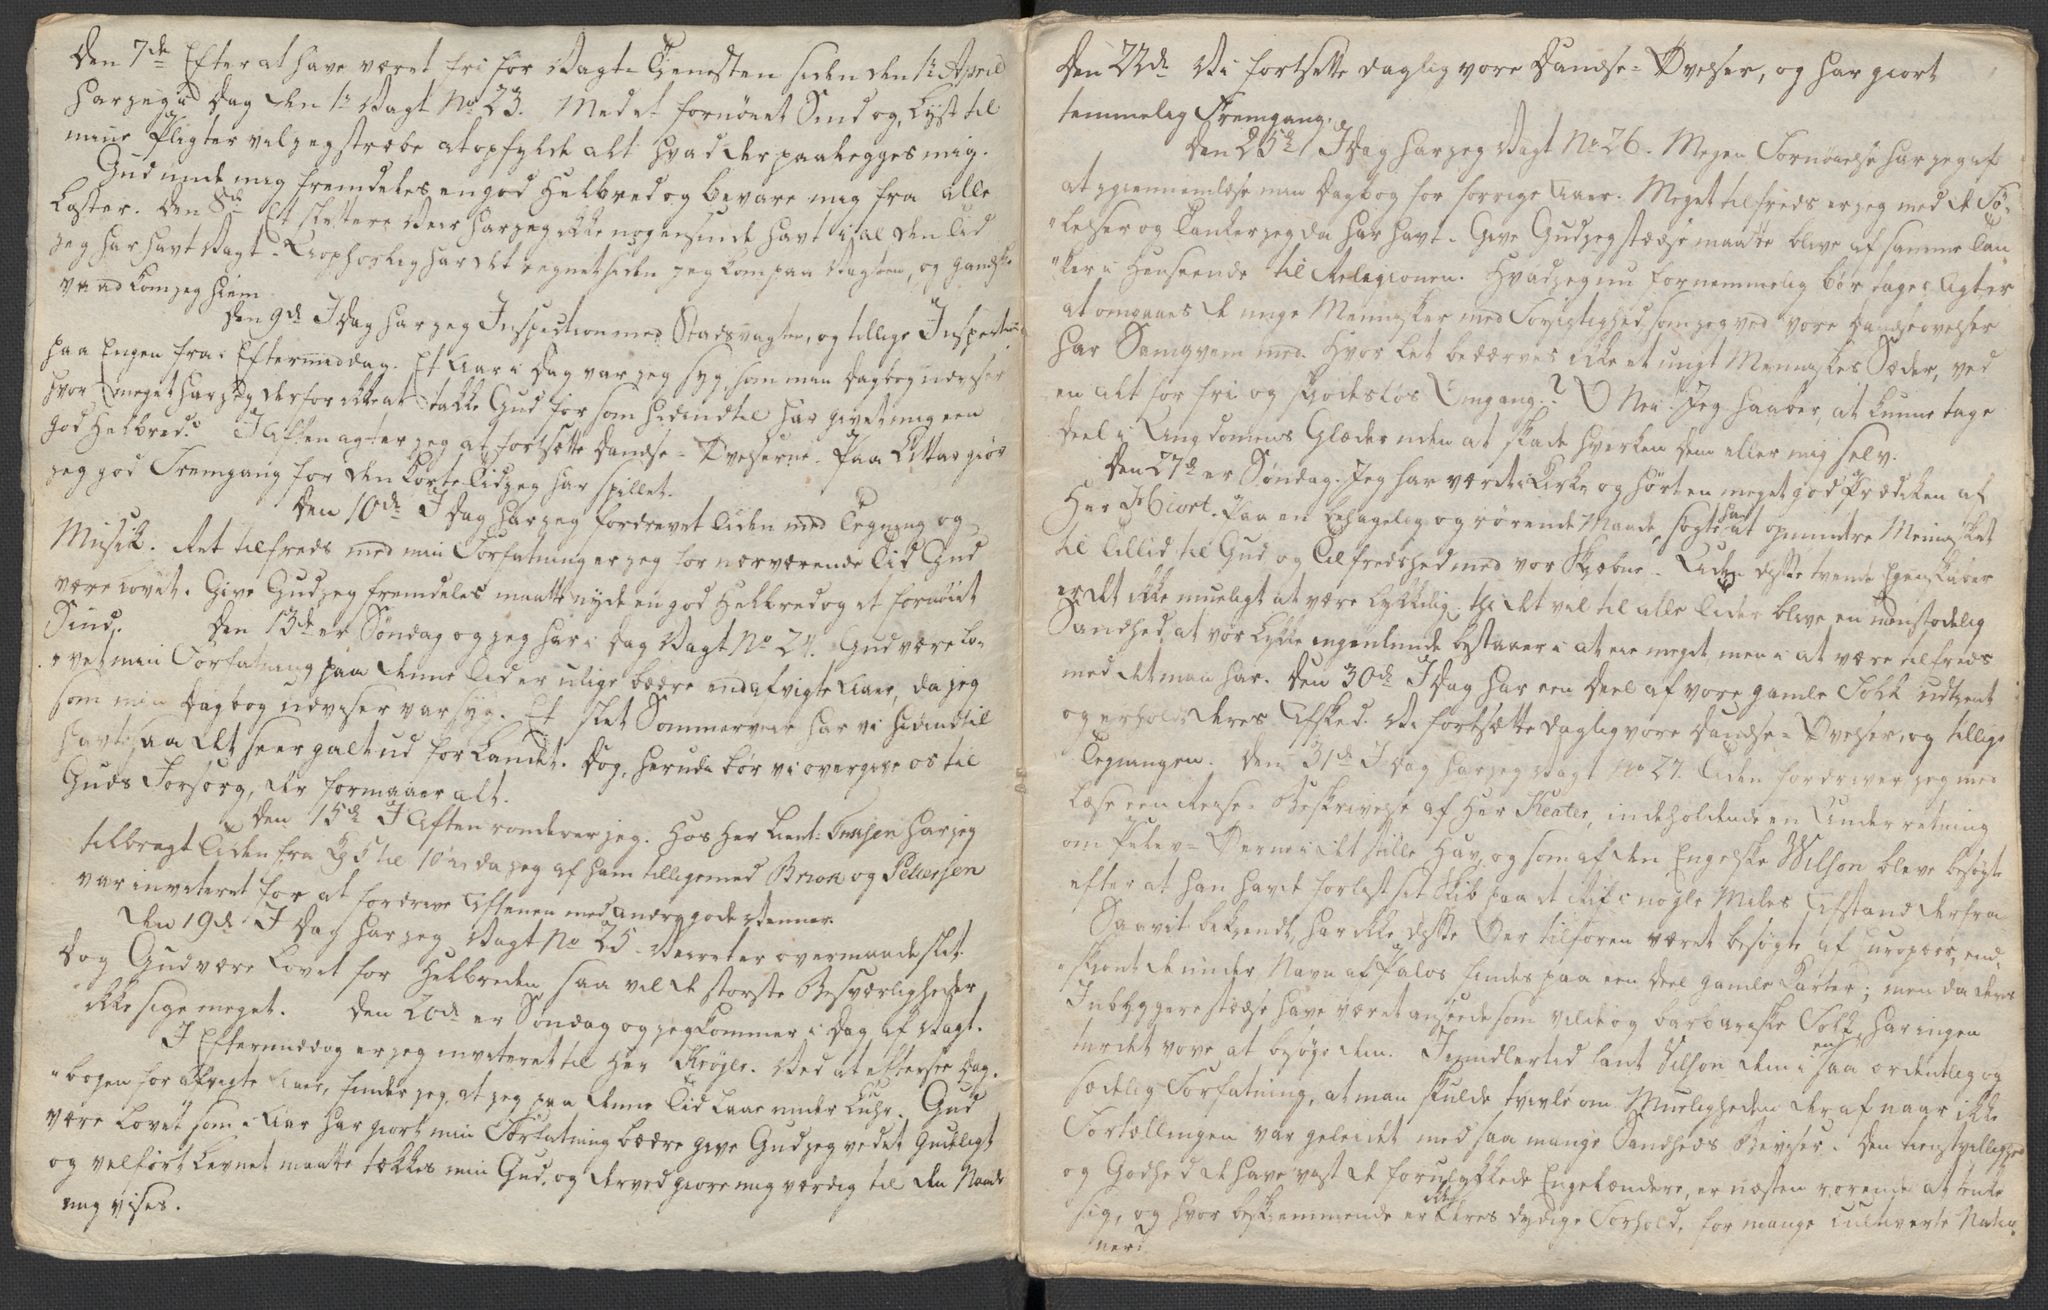 Den 7de Efter at have været fri for Vagt-Tienesten siden den 1te April
har jeg i Dag den 1te Vagt No 23. Med et fornøiet Sind og Lyst til
mine Pligter vil jeg stræbe at opfylde alt hvad der paalegges mig.
Gud unde mig fremdeles en god Helbred og bevare mig fra alle
Laster. Den 8de Et slettere Veir har jeg ikke nogensinde havt i al den Tid
jeg har havt Vagt. Uophørlig har det regnet siden jeg kom paa Vagten, og gandske
vaad kom jeg hiem.
Den 9de I Dag har jeg Inspection med Stadsvagten, og tillige Inspection
paa Engen fra i Eftermiddag. Et Aar i Dag var jeg syg, som min Dagbog udviser
hvor meget har jeg derfor ikke at takke Gud for som hidindtil har givet mig een
god Helbred? I Aften agter jeg at fortsætte Dandse-Øvelserne. Paa Cittar giør
jeg god Fremgang for den korte Tid jeg har spillet.
Den 10de I Dag har jeg fordrevet Tiden med Tegning og
Musik. Ret tilfreds med min Forfatning er jeg for nærværende Tid Gud
være Lovet. Give Gud jeg fremdeles maatte nyde en god Helbred og et fornøiet
Sind. Den 13de er Søndag og jeg har i Dag Vagt No 24. Gud være Lo-
"vet min Forfatning paa denne Tid er ulige bædre end afvigte Aar, da jeg
som min Dagbog udviser var syg. Et slet Sommerveir har vi hidindtil
havt saa det seer galt ud for Landet. Dog, herudi bør vi overgive os til
Guds Forsorg, der formaaer alt.
Den 15de I Aften ronderer jeg. Hos Her Lieut: har jeg
tilbragt Tiden fra Kl 5 til 10 da jeg af ham tilligemed Brion og Petersen
var inviteret for at fordrive Aftenen med andre gode Venner.
Den 19de I Dag har jeg Vagt No 25. Veiret er overmaade slet.
Dog Gud være Lovet for Helbreden, saa vil de største Besværligheder
ikke sige meget. Den 20de er Søndag og jeg kommer i Dag af Vagt.
I Eftermiddag er jeg inviteret til Her Krøger. Ved at eftersee Dag-
"bogen for afvigte Aar, finder jeg, at jeg paa denne Tid laae under Cuhr. Gud
være Lovet som i Aar har giort min Forfatning bædre give Gud jeg ved et Gudeligt
og velført Levnet maatte tækkes min Gud, og derved giøre mig værdig til den Naade
mig vises.
Den 22de Vi fortsette daglig vore Dandse-Øvelser, og har giort
temmelig Fremgang.
Den 25de I Dag har jeg Vagt No 26. Megen Fornøielse har jeg af
at igiennemlæse min Dagbog for forrige Aar. Meget tilfreds er jeg med de Fø-
"lelser og Tanker jeg da har havt. Give Gud jeg stædse maatte blive af samme Tan-
"ker i Henseende til Religionen. Hvad jeg nu fornemmelig bør tage Agt er
at omgaaes de unge Mennisker med Forsigtighed, som jeg ved vore Dandseøvelser
har Samqvem med. Hvor let bedærves ikke et ungt Menniskes Sæder, ved
en alt for fri og skiødesløs Omgang? O Nei! Jeg haaber, at kunne tage
Deel i Ungdomens Glæder uden at skade hverken dem eller mig selv.
Den 27de er Søndag. Jeg har været i Kirke og hørt en meget god Prædiken af
Her Hiort. Paa en behagelig og rørende Maade, søgte han at opmuntre Mennisket
til Tillid til Gud og Tilfredshed med vor Skjæbne. Uden disse tvende Egenskaber
er det ikke mueligt at være lykkelig; thi det vil til alle Tider blive en uimodstodelig
Sandhed, at vor Lykke ingenlunde bestaaer i at eie meget, men i at være tilfreds
med det man har. Den 30de I Dag har een Deel af vore gamle Folk udtient
og erholdt deres Afsked. Vi fortsætte daglig vore Dandse-Øvelser, og tillige
Tegningen. Den 31de I Dag har jeg Vagt No 27. Tiden fordriver jeg med
læse een Reise-Beskrivelse af Her Keate, indeholdende en Underretning
om Pelew-Øerne i det stille Hav, og som af den Engelske Wilson bleve besøgte
efter at han havde forlist sit Skib paa et Rif i nogle Miles Afstand derfra
Saavit bekiendt, har ikke disse Øer tilforen været besøgte af Europæer, end-
"skiønt de under Navn af Palos findes paa een Deel gamle Karter; men da deres
Indbyggere stedse have været ansete som vilde og barbariske Folk, har ingen
turdet vove at besøge dem. Imidlertid fant Vilson dem i en saa ordentlig og
sædelig Forfatning, at man skulde tvivle om Mueligheden deraf naar ikke
Fortællingen var geleidet med saa mange Sandheds Beviser. Den tienstvillighed
og Godhed de have viist de forulykkede Engelændere, er næsten rørende at tænke
sig, og hvor beskiemmende er ikke deres dydige Forhold, for mange cultiverte Natio-
ner.